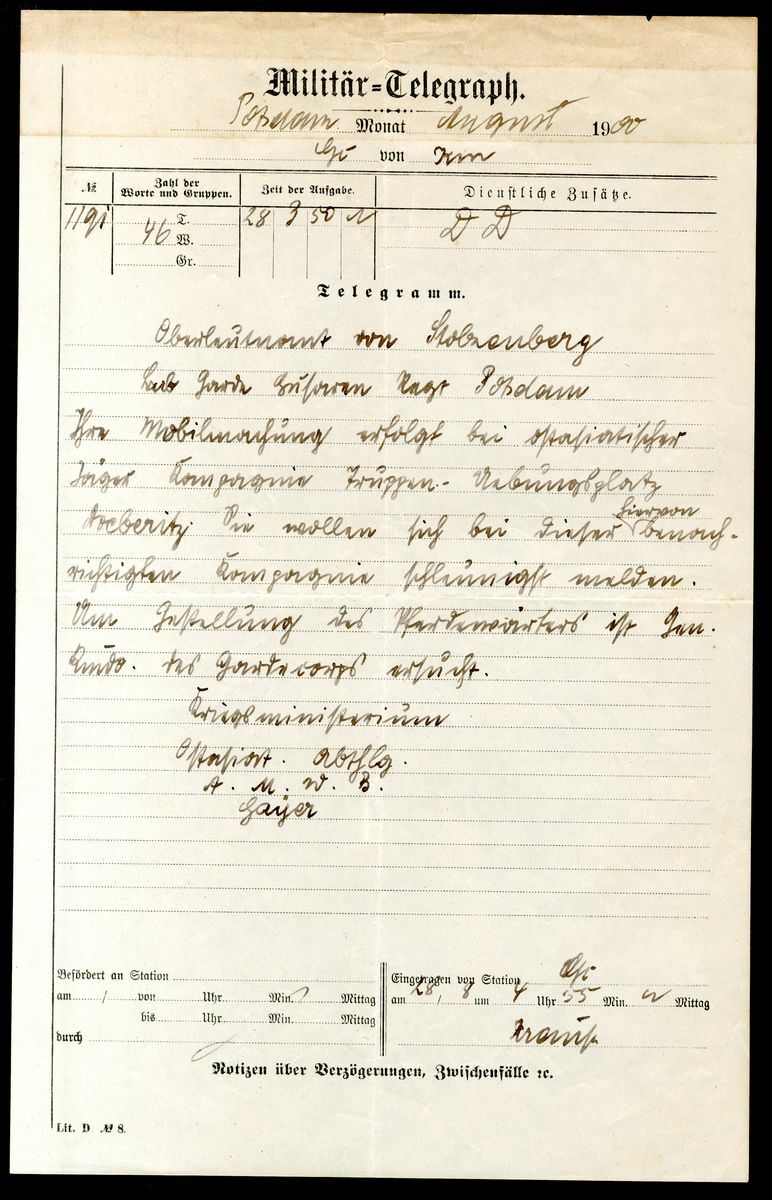 Militär-Telegraph.
Potsdam Monat August 1900
von
№ Zahl der Worte und Gruppen. Zeit der Aufgabe. Dienstliche Zusätze.
46 T. W. Gr. 28 3 50 N D D
Telegramm.
Oberleutnant von Stolzenberg
Leib Garde Husaren Regt Potsdam
Ihre Mobilmachung erfolgt bei ostasiatischer
Jäger Kompagnie Truppen-Uebungsplatz
Doeberitz. Sie wollen sich bei dieser hiervon benach-
richtigten Kompagnie schleunigst melden.
Um Gestellung des Pferdewärters ist Gen.
Kmdo. des Gardecorps ersucht.
Kriegsministerium
Ostasiat. Abthlg.
A. M. d. B.
Gayer
Befördert an Station
am / von Uhr Min. Mittag
bis Uhr Min. Mittag
durch
Eingetragen von Station
am 28/8 um 4 Uhr 55 Min. N Mittag
Notizen über Verzögerungen, Zwischenfälle ꝛc.
Lit. D № 8.